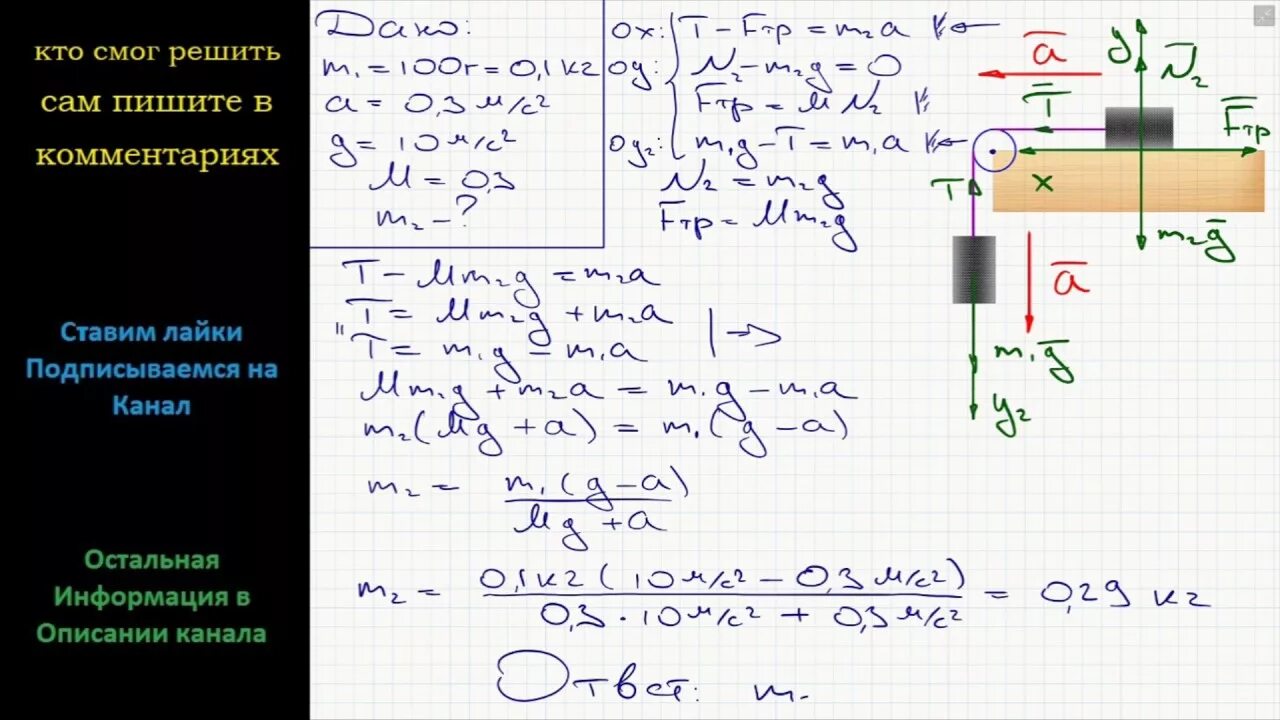 кто смог решить
сам пишите в
комментариях
Ставим лайки
Подписываемся на
Канал
Остальная
Информация в
Описании канала
Дано:
m₁ = 100г = 0,1 кг
a = 0,3 м/с²
g = 10 м/с²
μ = 0,3
m₂ - ?
ox: T - Fтр = m₂a
oy: N₂ - m₂g = 0
Fтр = μN₂
oy₂: m₁g - T = m₁a
N₂ = m₂g
Fтр = μm₂g
T - μm₂g = m₂a
T = μm₂g + m₂a
T = m₁g - m₁a
μm₂g + m₂a = m₁g - m₁a
m₂(μg + a) = m₁(g - a)
m₂ = m₁(g - a) / μg + a
m₂ = 0,1 кг (10 м/с² - 0,3 м/с²) / 0,3 · 10 м/с² + 0,3 м/с² = 0,29 кг
Ответ: m
a
y
N₂
T
Fтр
T
x
m₂g
a
m₁g
y₂